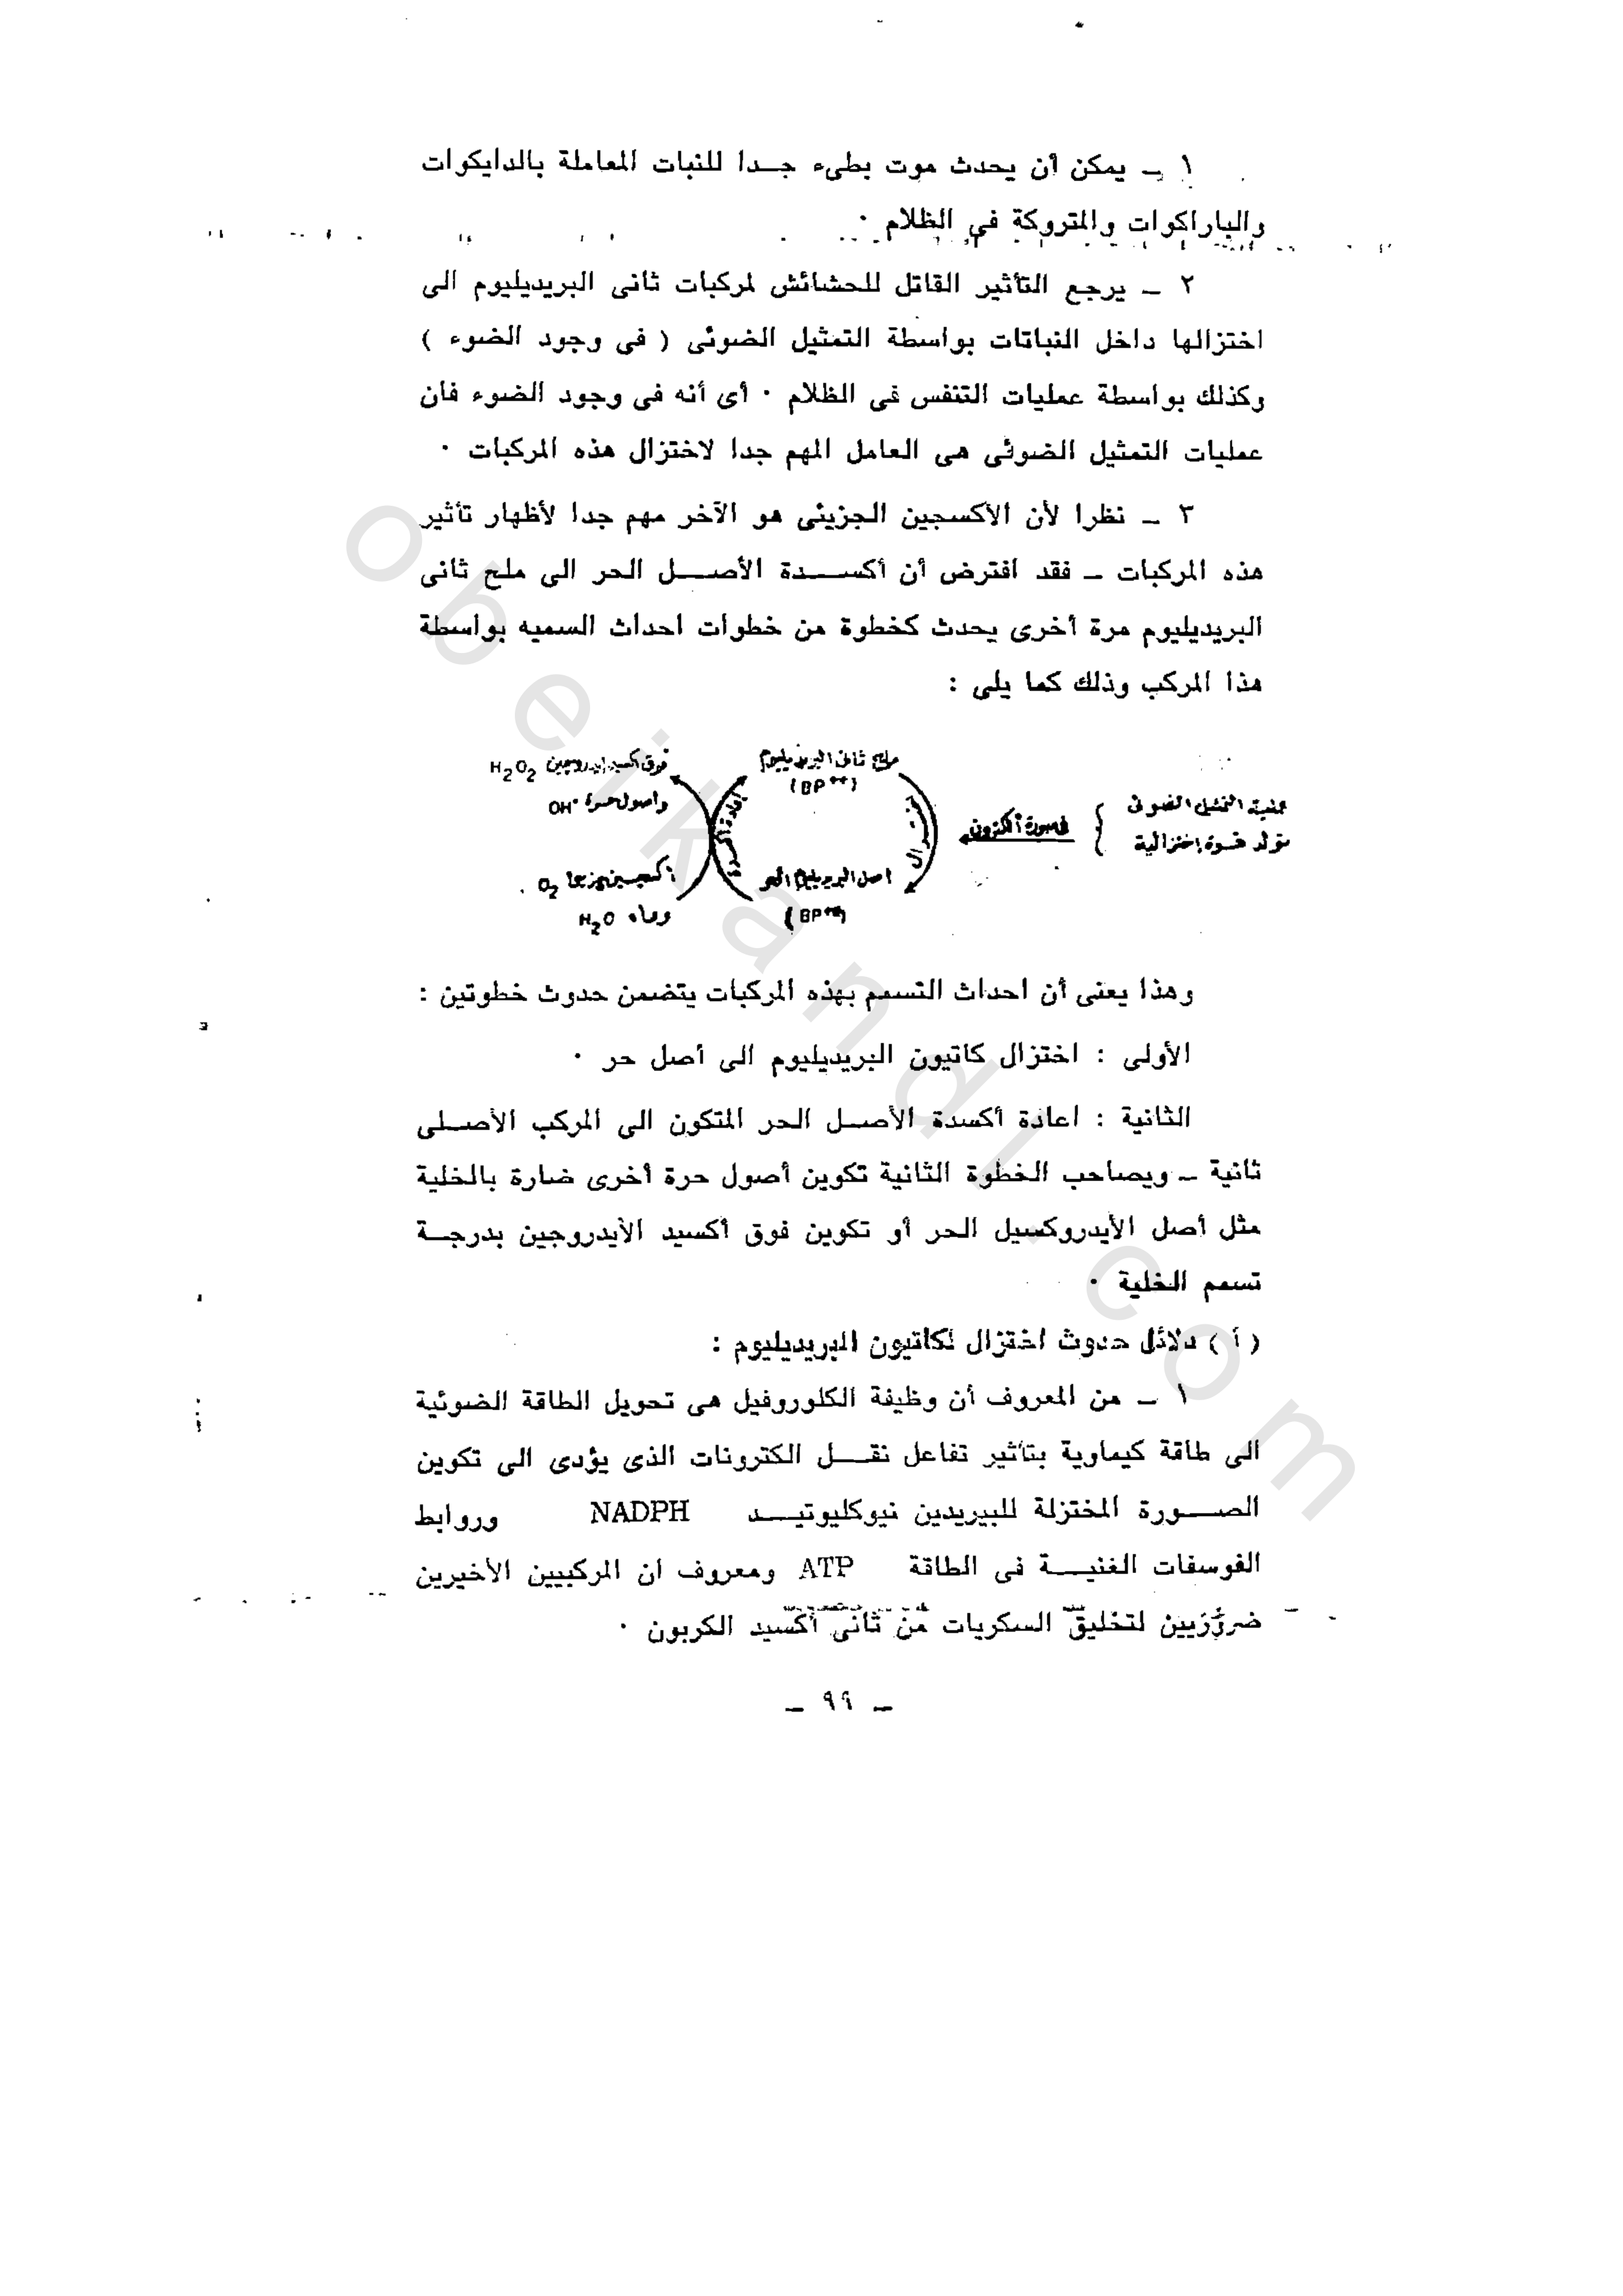 ١ ــ يمكن أن يحدث موت بطىء جــدا للنبات المعاملة بالدايكوات
والباراكوات والمتروكة فى الظلام ٠
٢ ــ يرجع التأثير القاتل للحشائش لمركبات ثانى البريديليوم الى
اختزالها داخل النباتات بواسطة التمثيل الضوئى ( فى وجود الضوء )
وكذلك بواسطة عمليات التنفس فى الظلام ٠ أى أنه فى وجود الضوء فان
عمليات التمثيل الضوئى هى العامل المهم جدا لاختزال هذه المركبات ٠
٣ ــ نظرا لأن الأكسجين الجزيئى هو الآخر مهم جدا لأظهار تأثير
هذه المركبات ــ فقد افترض أن أكســـدة الأصـــل الحر الى ملح ثانى
البريديليوم مرة أخرى يحدث كخطوة من خطوات احداث السميه بواسطة
هذا المركب وذلك كما يلى :
عملية التمثيل الضوئى
تولد قوة اختزالية
فى صورة الكترون
ملح ثانى البريديليوم
(BP++)
اصل البريديليوم الحر
اعادة أكسدة
فوق اكسيد ايدروجين H2O2
واصول حرة OH·
أكسجين جزيئى O2
وماء H2O
وهذا يعنى أن احداث التسمم بهذه المركبات يتضمن حدوث خطوتين :
الأولى : اختزال كاتيون البريديليوم الى أصل حر ٠
الثانية : اعادة أكسدة الأصــل الحر المتكون الى المركب الأصــلى
ثانية ــ ويصاحب الخطوة الثانية تكوين أصول حرة أخرى ضارة بالخلية
مثل أصل الأيدروكسيل الحر أو تكوين فوق أكسيد الأيدروجين بدرجــة
تسمم الخلية ٠
( أ ) دلائل حدوث اختزال لكاتيون البريديليوم :
١ ــ من المعروف أن وظيفة الكلوروفيل هى تحويل الطاقة الضوئية
الى طاقة كيماوية بتأثير تفاعل نقـــل الكترونات الذى يؤدى الى تكوين
الصـــورة المختزلة للبيريدين نيوكليوتيـــد NADPH وروابط
الفوسفات الغنيـــة فى الطاقة ATP ومعروف ان المركبيين الأخيرين
ضروريين لتخليق السكريات من ثانى أكسيد الكربون ٠
ــ ٩٩ ــ
obeikandl.com